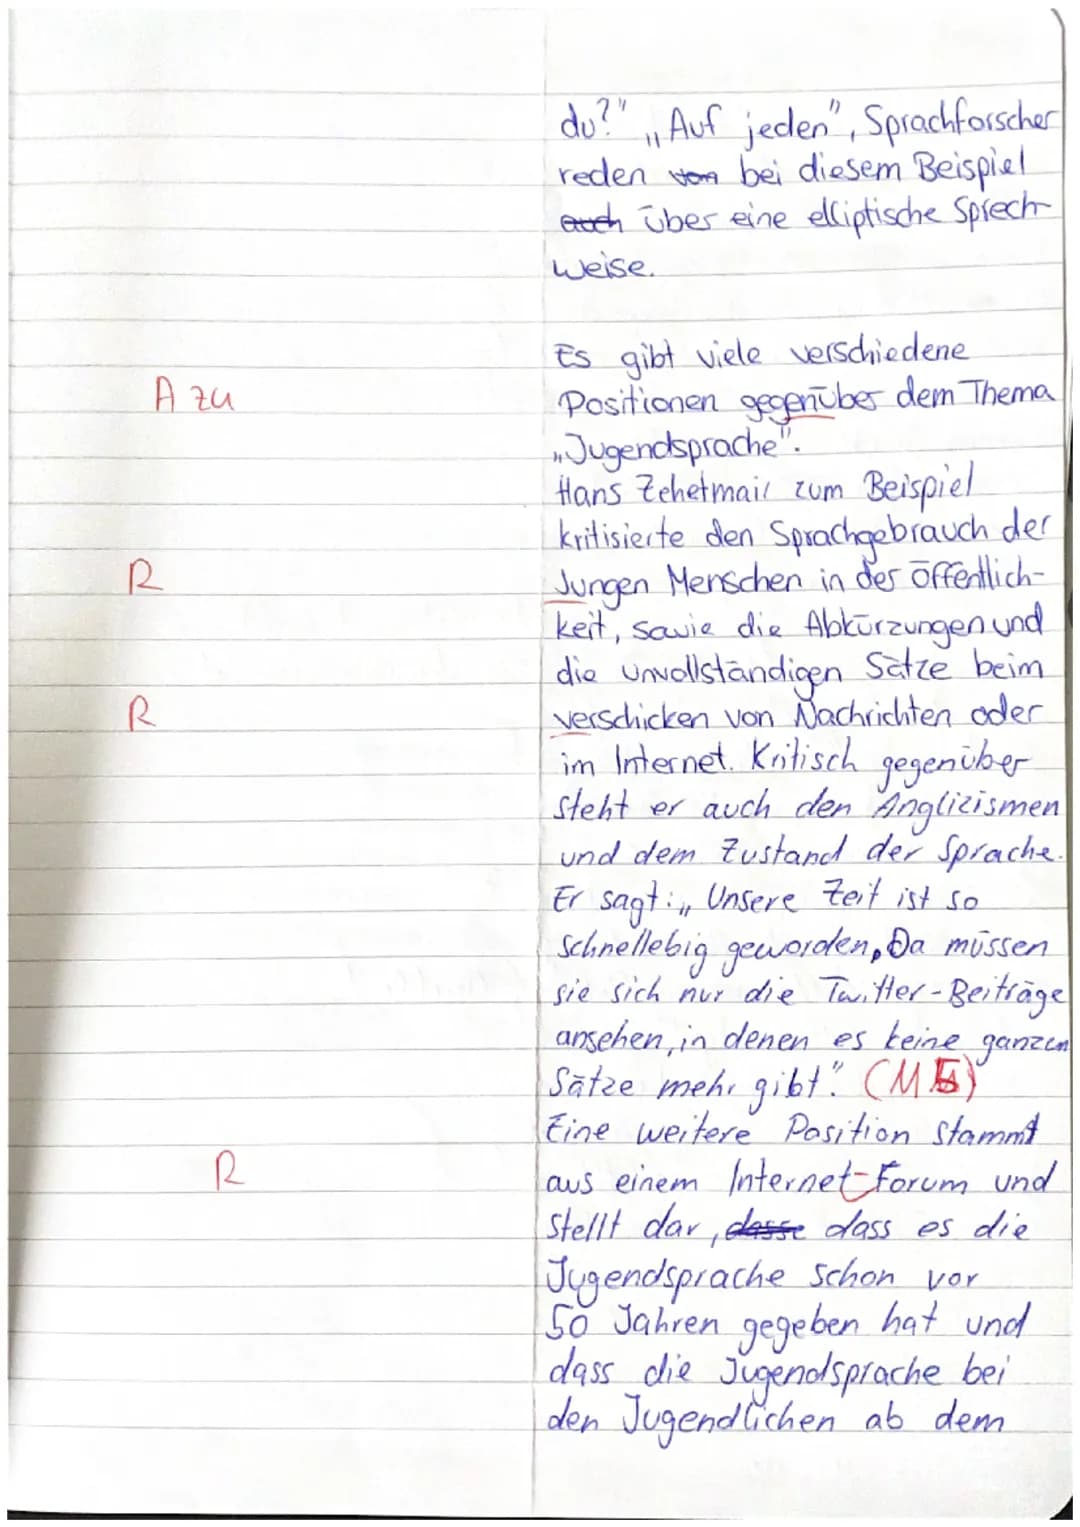 du?" „Auf jeden", Sprachforscher
reden von bei diesem Beispiel
auch über eine elliptische Sprech-
weise.
Es gibt viele verschiedene
A zu
Positionen gegenüber dem Thema
„Jugendsprache".
Hans Zehetmair zum Beispiel
kritisierte den Sprachgebrauch der
R
Jungen Menschen in der Öffentlich-
keit, sowie die Abkürzungen und
die unvollständigen Sätze beim
R
verschicken von Nachrichten oder
im Internet. Kritisch gegenüber
steht er auch den Anglizismen
und dem Zustand der Sprache.
Er sagt: „Unsere Zeit ist so
schnellebig geworden, Da müssen
sie sich nur die Twitter-Beiträge
ansehen, in denen es keine ganzen
Sätze mehr gibt". (M5)
Eine weitere Position stammt
R
aus einem Internet-Forum und
stellt dar, dasse dass es die
Jugendsprache schon vor
50 Jahren gegeben hat und
dass die Jugendsprache bei
den Jugendlichen ab dem